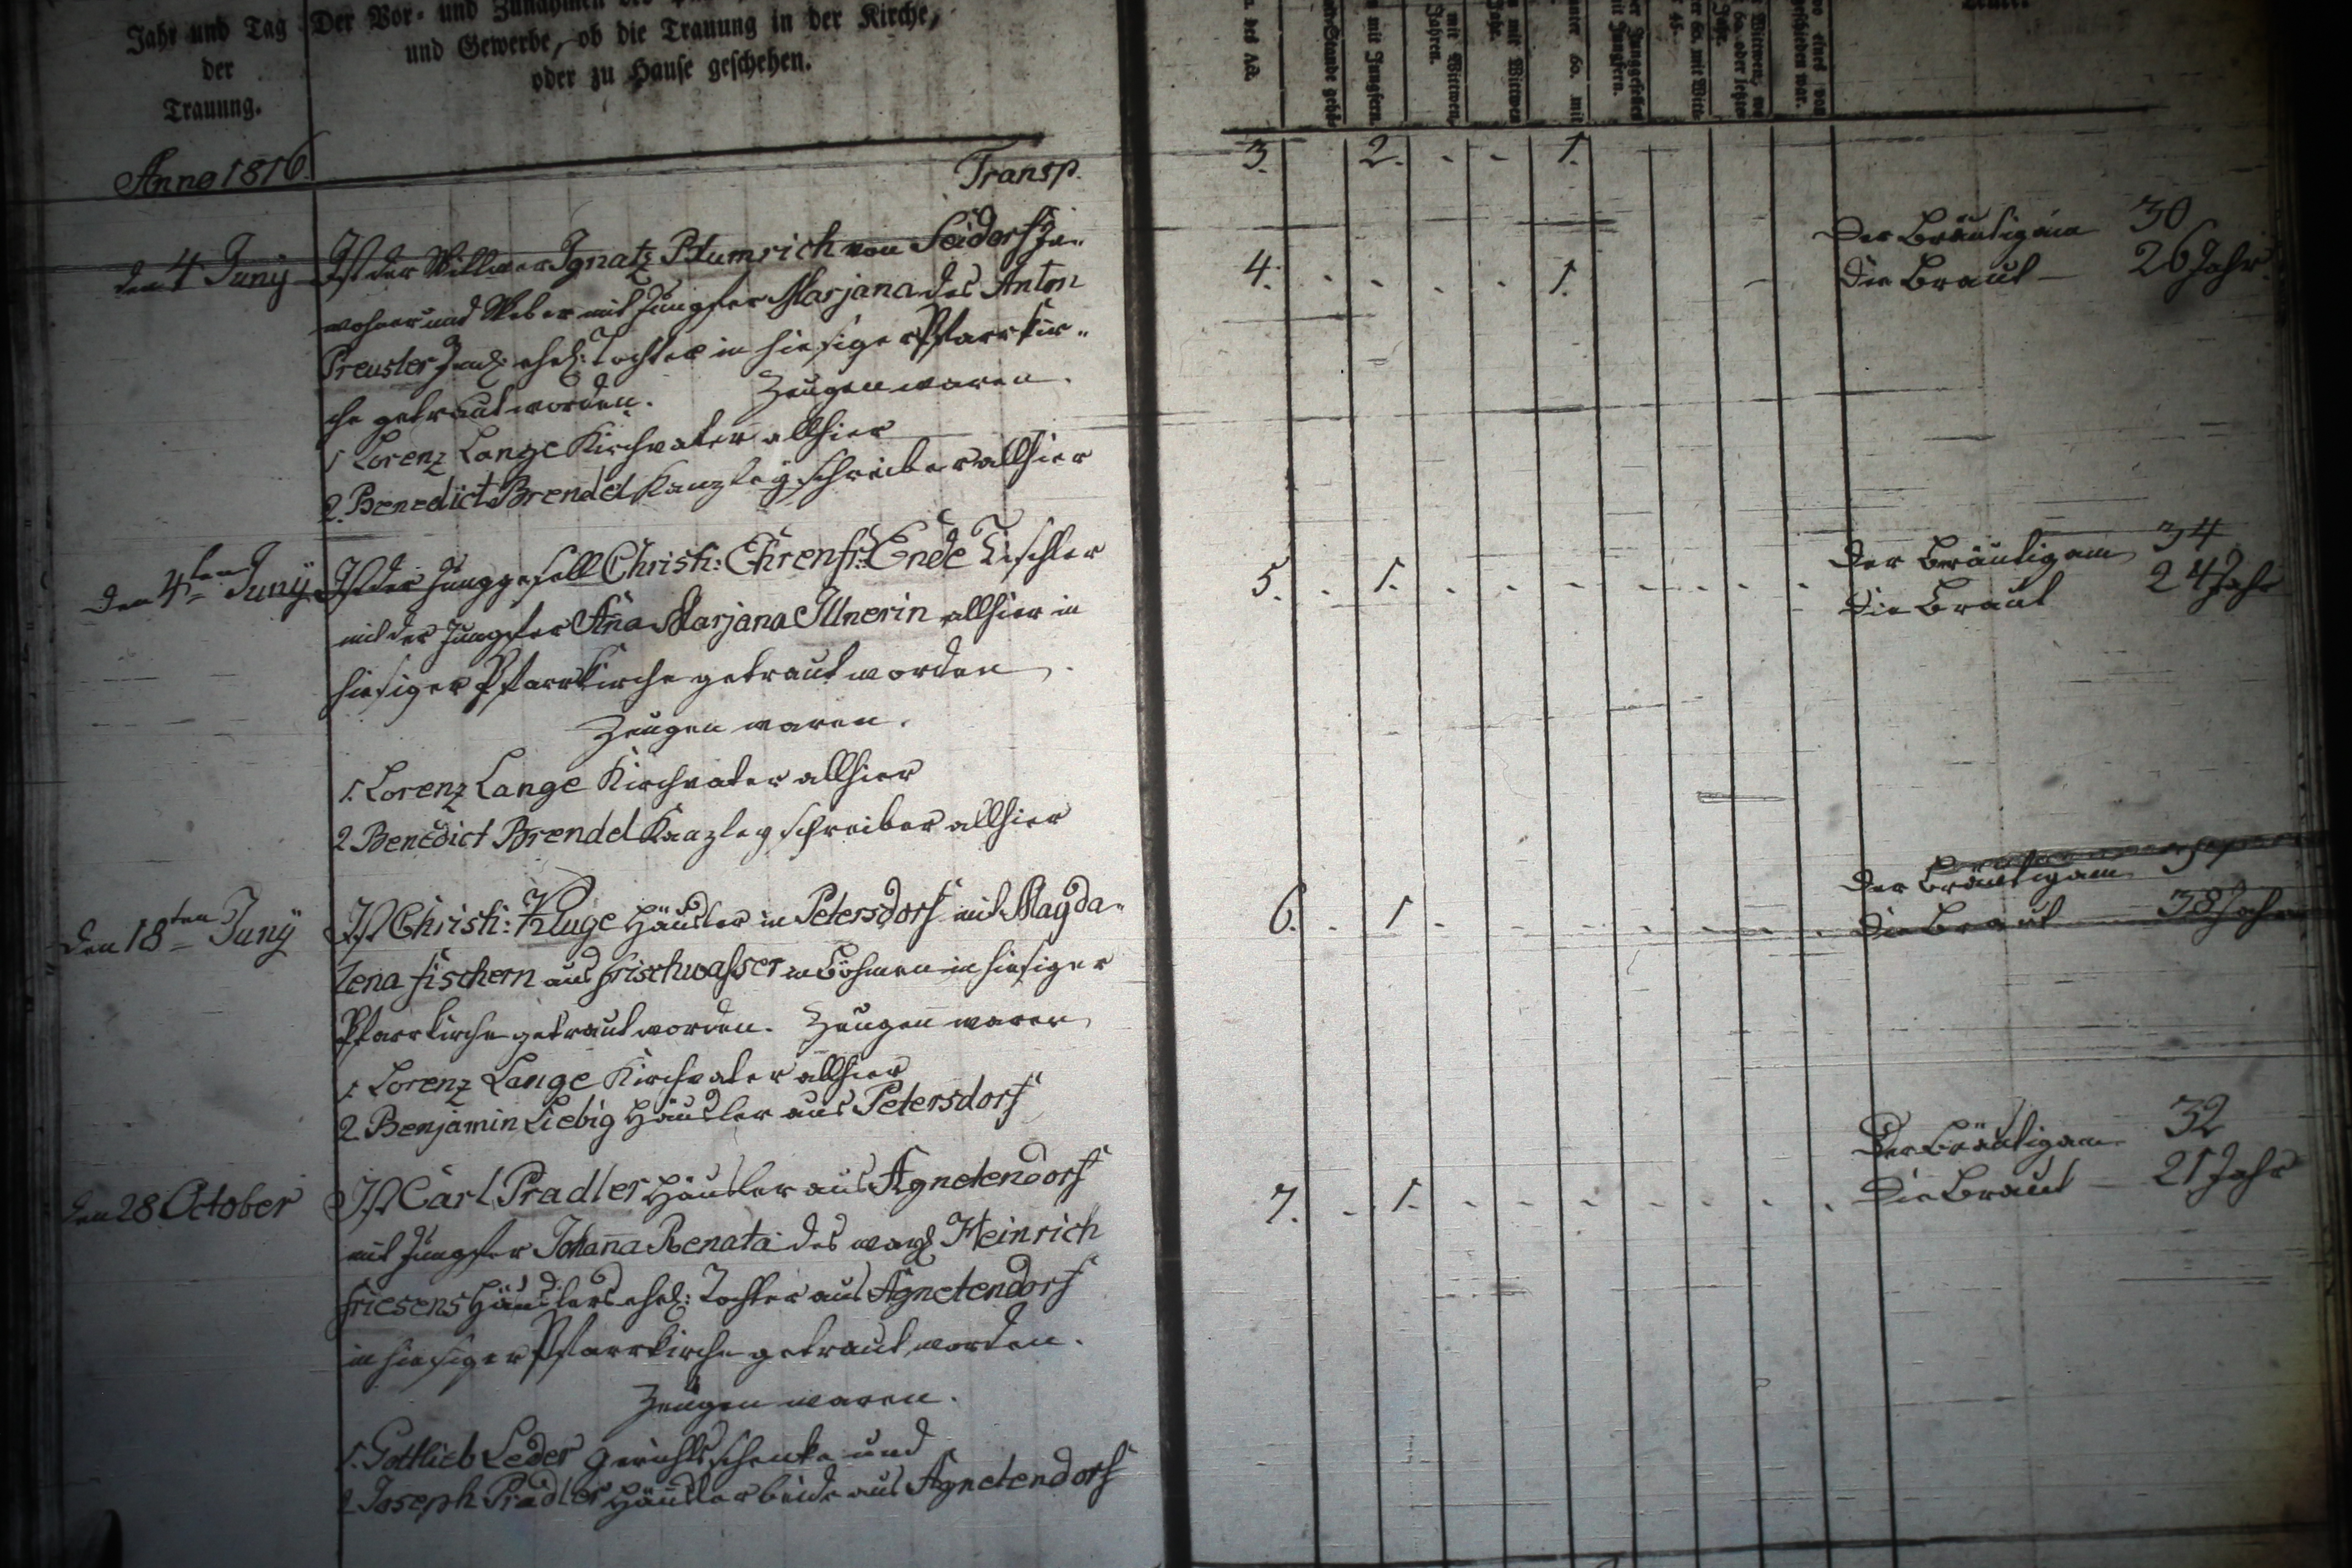 Jahr und Tag
der
Trauung.
Der Vor- und Zunahmen
und Gewerbe, ob die Trauung in der Kirche,
oder zu Hause geschehen.
Anno 1816.
Transp.
3. 2. - - 1.
den 4 Juny
Ist der Wittwer Ignatz Plumrich von Seidorf In-
wohner und Weber mit Jungfer Marjana des Anton
Preusler ehel: Tochter in hiesiger Pfarrkir-
che getraut worden. Zeugen waren.
1 Lorenz Lange Kirchvater allhier
2. Benedict Brendel Kanzleÿschreiber allhier
4. - - - - 1. -
Der Bräutigam 30
Die Braut — 26 Jahr
den 4ten Juny
Ist der Junggesell Christ: Ehrenfr: Ende Tischler
mit der Jungfer Ana Marjana Illnerin allhier in
hiesiger Pfarrkirche getraut worden.
Zeugen waren.
1. Lorenz Lange Kirchvater allhier
2 Benedict Brendel Kanzleyschreiber allhier
5. - 1. - - - - - - -
Der Bräutigam 34
Die Braut 24 Jahr
den 18ten Juny
Ist Christ: Kluge Häusler in Petersdorf mit Magda-
lena Fischern aus Frischwasser in Böhmen in hiesiger
Pfarrkirche getraut worden. Zeugen waren
1. Lorenz Lange Kirchvater allhier
2. Benjamin Liebig Häusler aus Petersdorf
6. - 1 - - - - - - -
Der Bräutigam
Die Braut — 38 Jahr
den 28 October
Ist Carl Pradler Häusler aus Agnetendorf
mit Jungfer Johana Renata des Heinrich
Friesens Häuslers ehel: Tochter aus Agnetendorf
in hiesiger Pfarrkirche getraut worden.
Zeugen waren.
1. Gottlieb Leder Gerichtsschenke und
2 Joseph Pradler Häusler beide aus Agnetendorf
7. - 1. - - - - - - -
Der Bräutigam 32
Die Braut — 21 Jahr